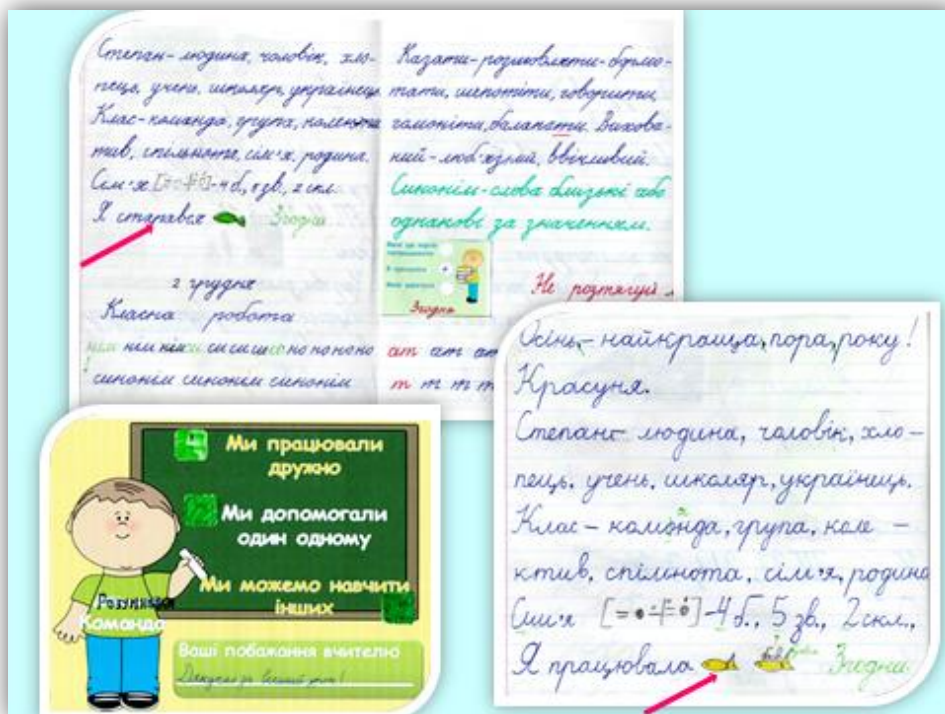 Степан – людина, чоловік, хло-
пець, учень, школяр, українець.
Клас – команда, група, колек
тив, спільнота, сім'я, родина.
Сім'я [=•–|=•] – 4 б., 5 зв., 2 скл.
Я старався Згодна
2 грудня
Класна робота
нім нім нім си си си но но но но
синонім синонім синонім
Казати – розмовляти – бормо-
тати, шепотіти, говорити,
гомоніти, балакати. Вихова-
ний – люб'язний, ввічливий.
Синонім – слова близькі або
однакові за значенням.
Згодна
Не розтягуй
ат ат ат
т т т т
Ми працювали
дружно
Ми допомогали
один одному
Ми можемо навчити
інших
Розумники
Команда
Ваші побажання вчителю
Дякуємо за урок!
Осінь – найкраща пора року!
Красуня.
Степан – людина, чоловік, хло –
пець, учень, школяр, українець.
Клас – команда, група, коле –
ктив, спільнота, сім'я, родина
Сім'я [=•–|=•] – 4 б., 5 зв., 2 скл.,
Я працювала Згодна